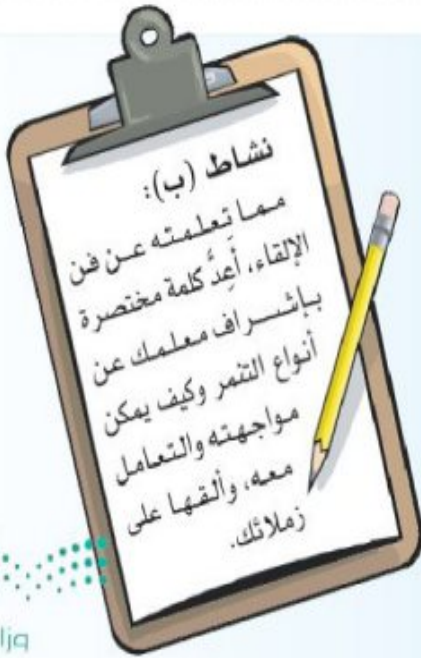 نشاط (ب):
مما تعلمته عن فن
الإلقاء، أَعِدَّ كلمة مختصرة
بإشراف معلمك عن
أنواع التنمر وكيف يمكن
مواجهته والتعامل
معه، وألقها على
زملائك.